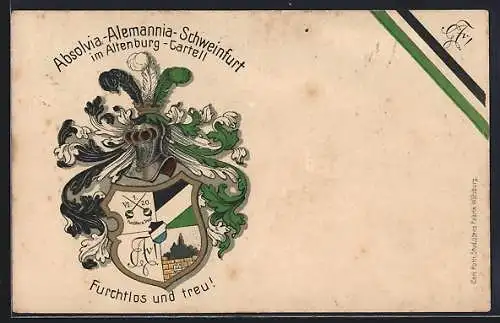 Absolvia-Alemannia-Schweinfurt
im Altenburg-Cartell
1.
VI. 20.
Furchtlos und treu!
Carl Roth, Studentica Fabrik Würzburg.